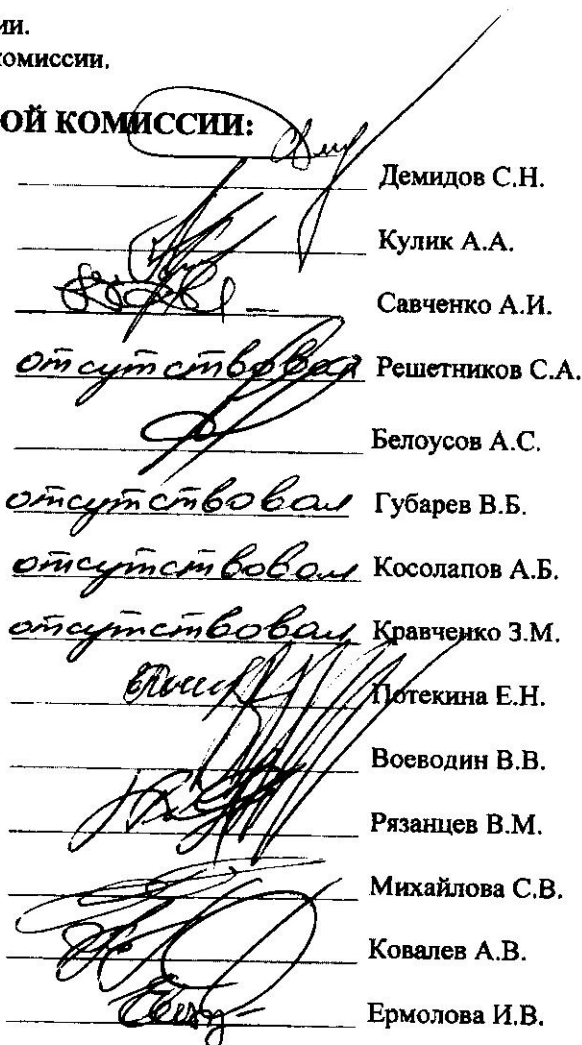 ии.
комиссии.
ОЙ КОМИССИИ:
Демидов С.Н.
Кулик А.А.
Савченко А.И.
отсутствовал Решетников С.А.
Белоусов А.С.
отсутствовал Губарев В.Б.
отсутствовал Косолапов А.Б.
отсутствовал Кравченко З.М.
Потекина Е.Н.
Воеводин В.В.
Рязанцев В.М.
Михайлова С.В.
Ковалев А.В.
Ермолова И.В.